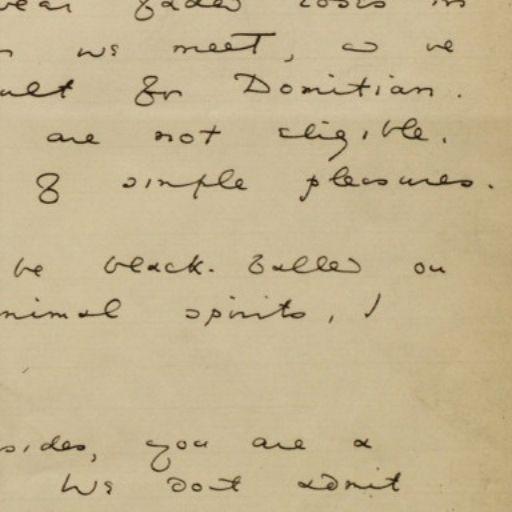 wear faded roses in
n we meet, & we
ult for Domitian.
are not eligible.
of simple pleasures.
be black-balled on
nimal spirits, I
sides, you are a
We dont admit